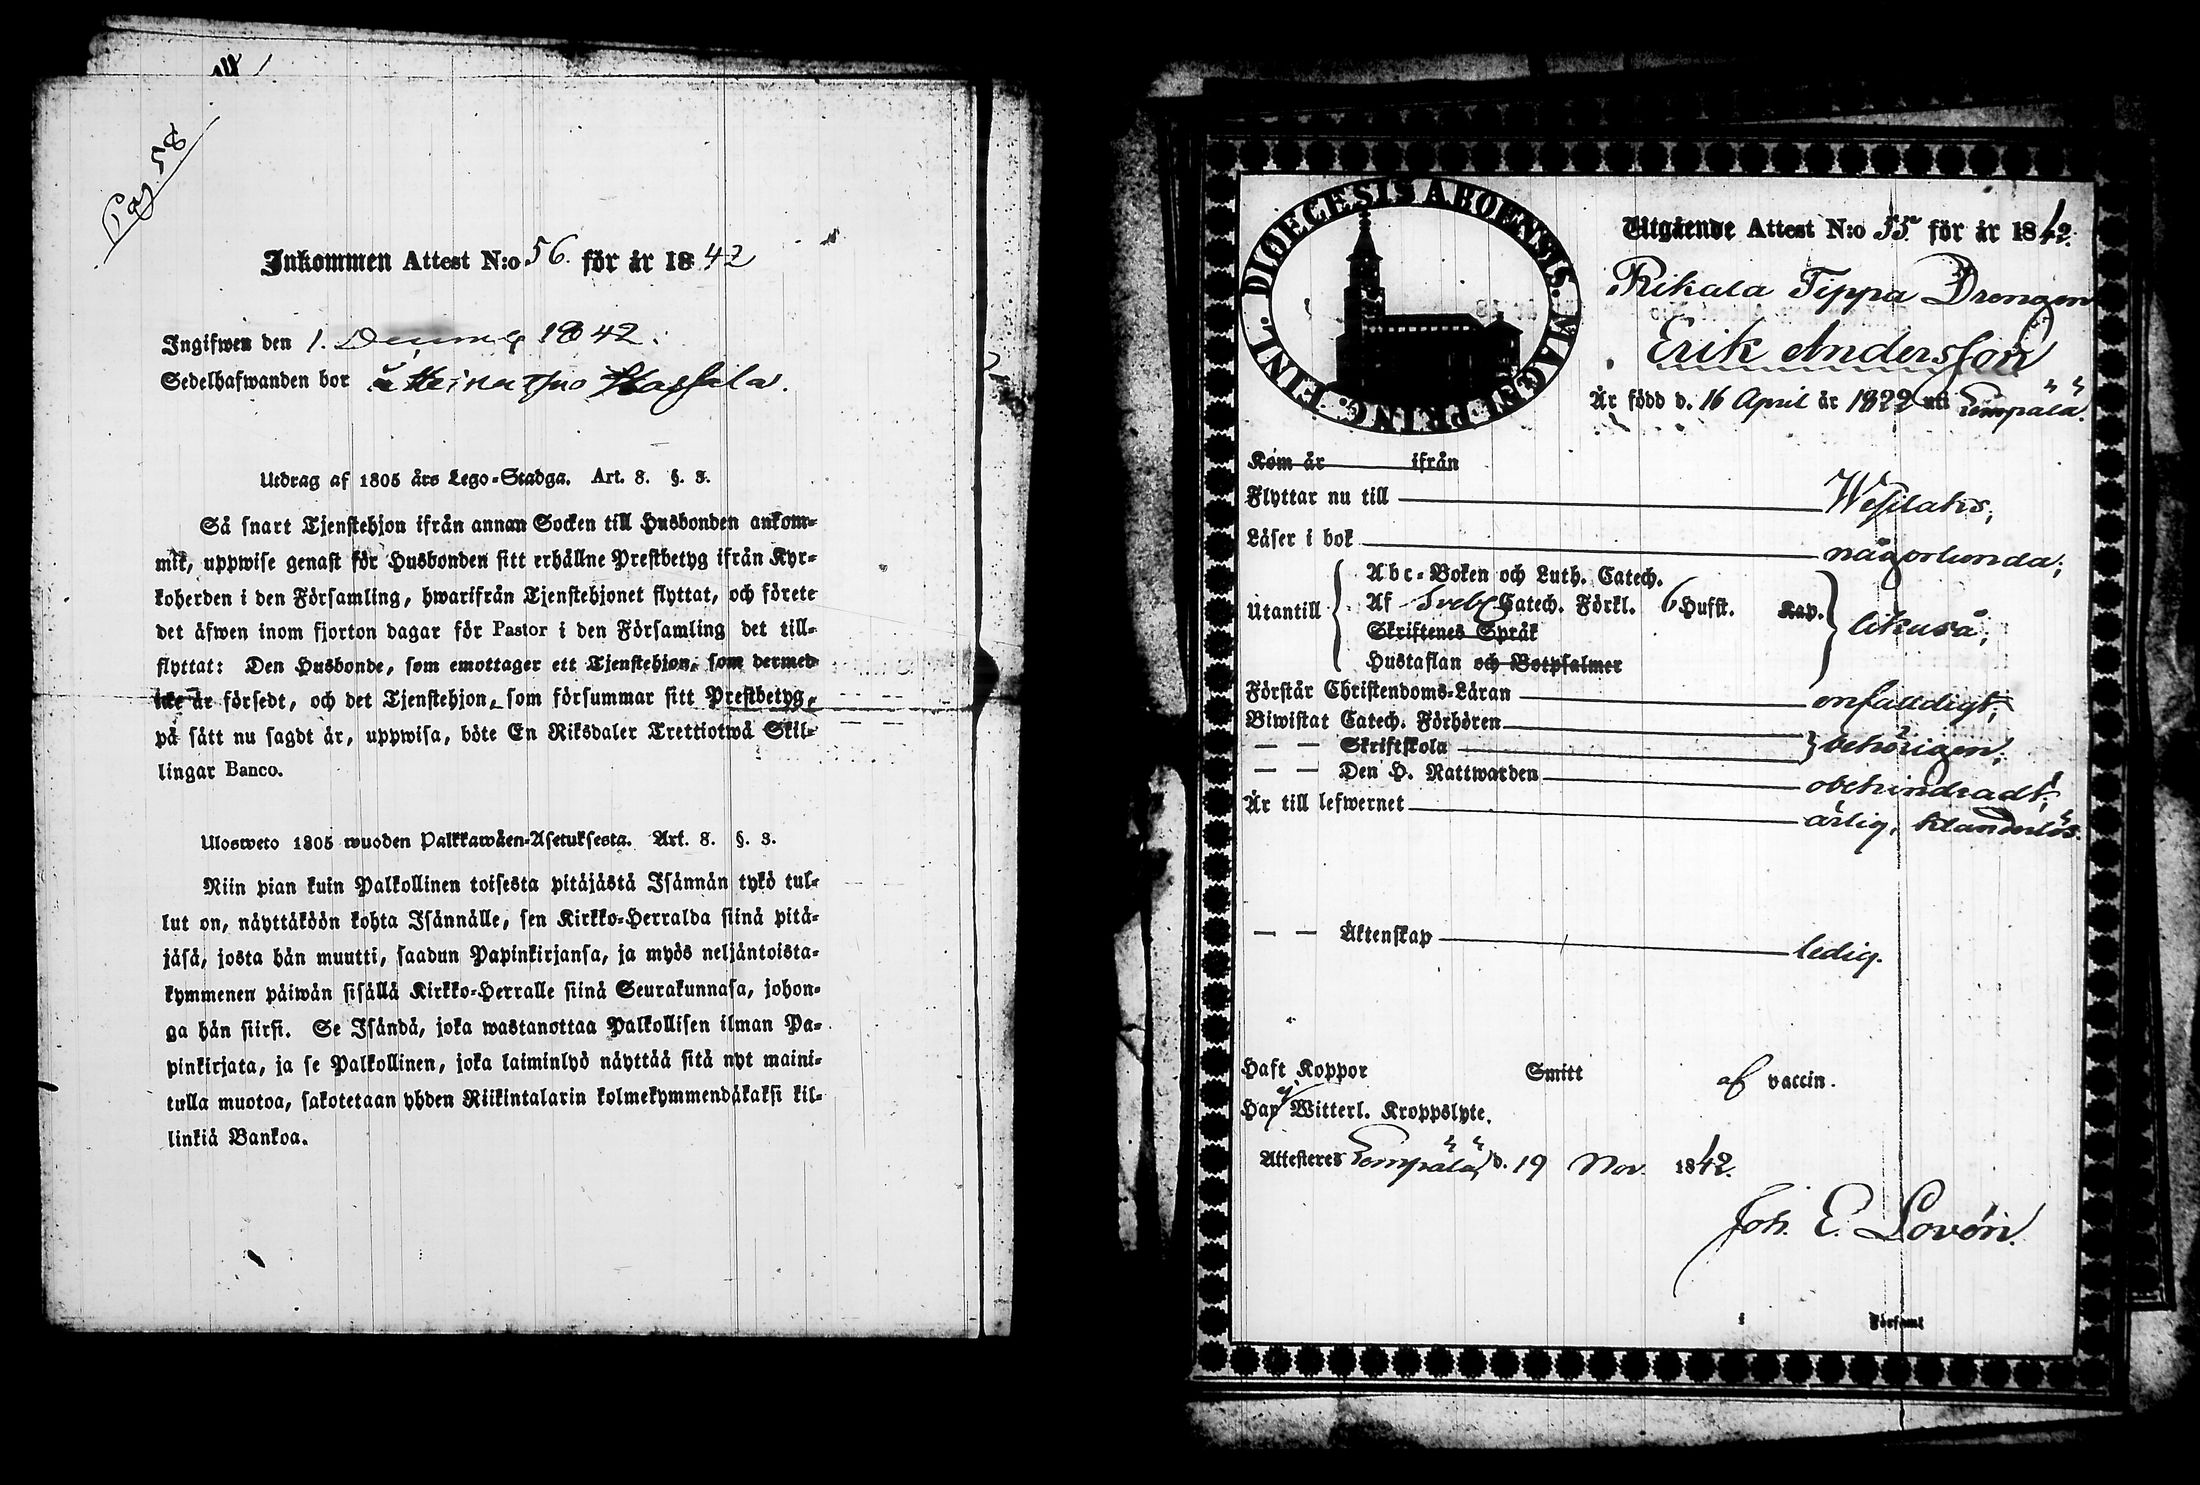 Pag. 58
Inkommen Attest N:o 56. för år 1842
Ingifwen den 1. 1842.
Sedelhafwanden bor å
Utdrag af 1805 års Lego-Stadga. Art. 8. §. 3.
Så snart Tjenstehjon ifrån annan Socken till Husbonden ankom-
mit, uppwise genast för Husbonden sitt erhållne Prestbetyg ifrån Kyr-
koherden i den Församling, hwarifrån Tjenstehjonet flyttat, och förete
det äfwen inom fjorton dagar för Pastor i den Församling det till-
flyttat: Den Husbonde, som emottager ett Tjenstehjon, som dermed
icke är försedt, och det Tjenstehjon, som försummar sitt Prestbetyg,
på sätt nu sagdt är, uppwisa, böte En Riksdaler Trettiotwå Skil-
lingar Banco.
Ulosweto 1805 wuoden Palkkawäen-Asetuksesta. Art. 8. §. 3.
Niin pian kuin Palkollinen toisesta pitäjästä Isännän tykö tul-
lut on, näyttäköön kohta Isännälle, sen Kirkko-Herralda siinä pitä-
jäsä, josta hän muutti, saadun Papinkirjansa, ja myös neljäntoista-
kymmenen päiwän sisällä Kirkko-Herralle siinä Seurakunnasa, johon-
ga hän siirsi. Se Isändä, joka wastanottaa Palkollisen ilman Pa-
pinkirjata, ja se Palkollinen, joka laiminlyö näyttää sitä nyt maini-
tulla muotoa, sakotetaan yhden Riikintalarin kolmekymmendäkaksi kil-
linkiä Bankoa.
DIOECESIS ABOENSIS. MAGNI PRINC. FINL.
Utgående Attest N:o 55. för år 1842.
Rikala Tippa Drengen
Erik Andersson
Är född d. 16 April år 1822 uti Lempälä.
Kom år ifrån
Flyttar nu till Wesilaks,
Läser i bok någorlunda,
Utantill
Abc-Boken och Luth. Catech.
Af Sveb. Catech. Förkl. 6 Hufst. Kap.
Skriftenes Språk
Hustaflan och Botpsalmer
likuså,
Förstår Christendoms-Läran enfaldigt,
Biwistat Catech. Förhören
— — Skriftskola
behörigen,
— — Den H. Nattwarden obehindradt,
Är till lefwernet ärlig, klanderlös.
— — Äktenskap ledig.
Haft Koppor Smitt af vaccin.
Har ej Witterl. Kroppslyte.
Attesteres Lempälä, d. 19 Nov. 1842.
Joh. E. Lovén.
i Församl